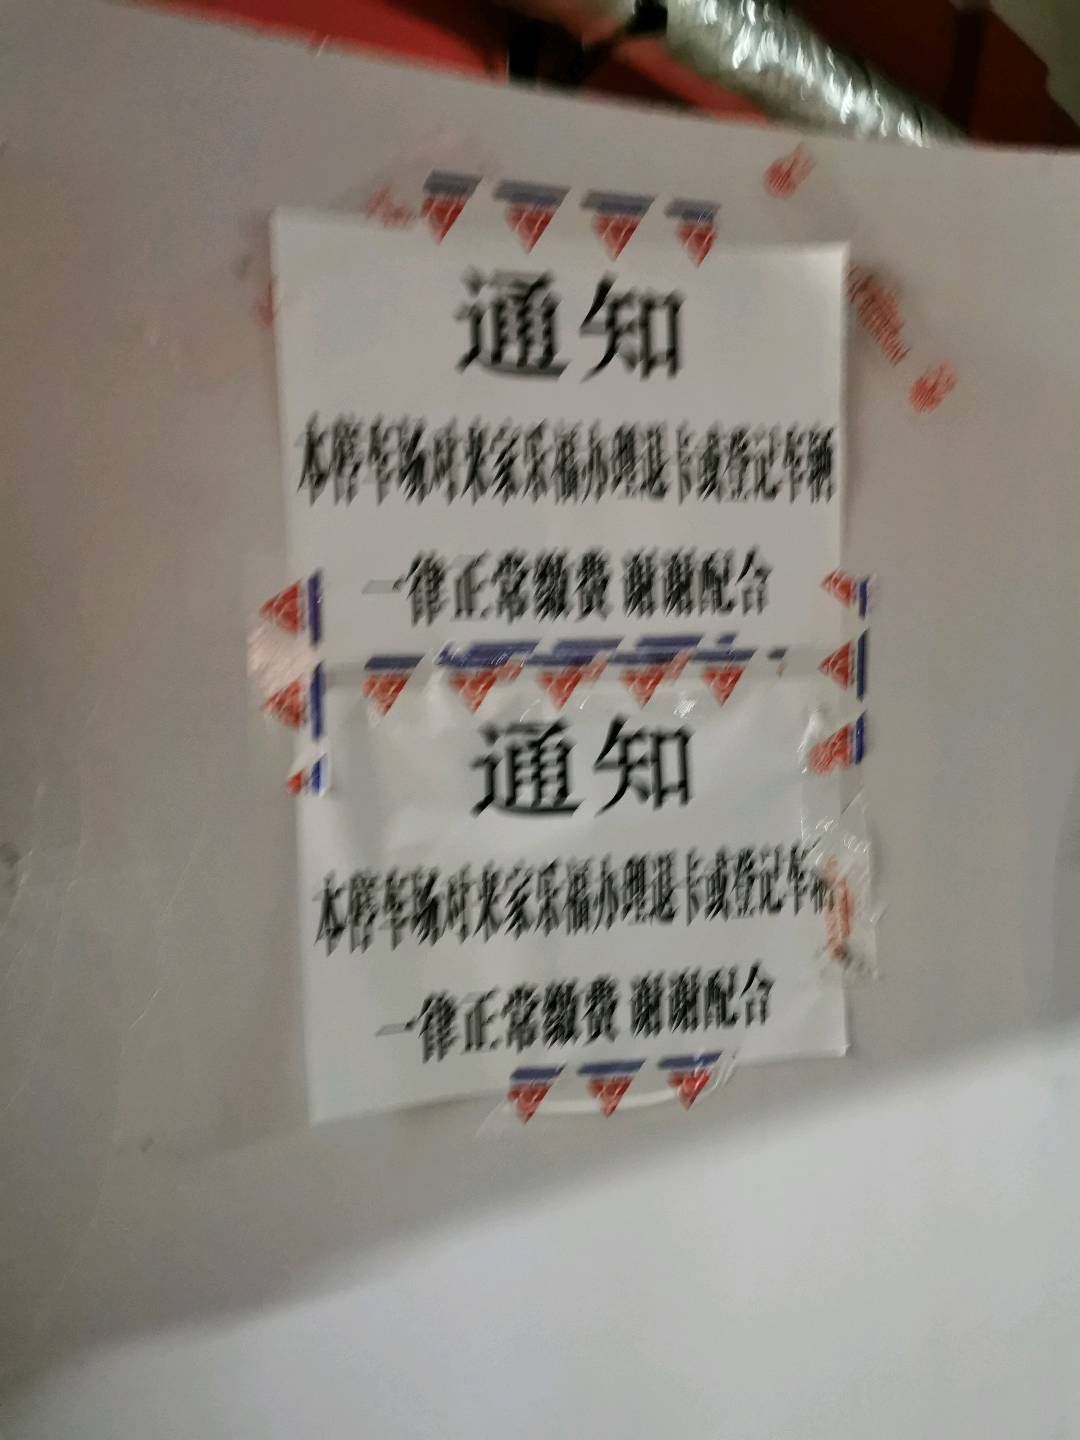 通知
本停车场对来家乐福办理退卡或登记车辆
一律正常缴费 谢谢配合
通知
本停车场对来家乐福办理退卡或登记车辆
一律正常缴费 谢谢配合